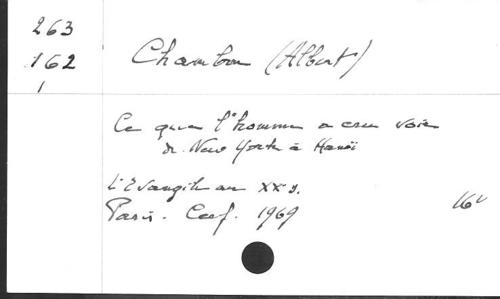 263
162
1
Chambon (Albert)
Ce que l'homme a cru voir
de New York à Hanoï
L'Evangile au XXe s.
Paris. Cerf. 1969
16°